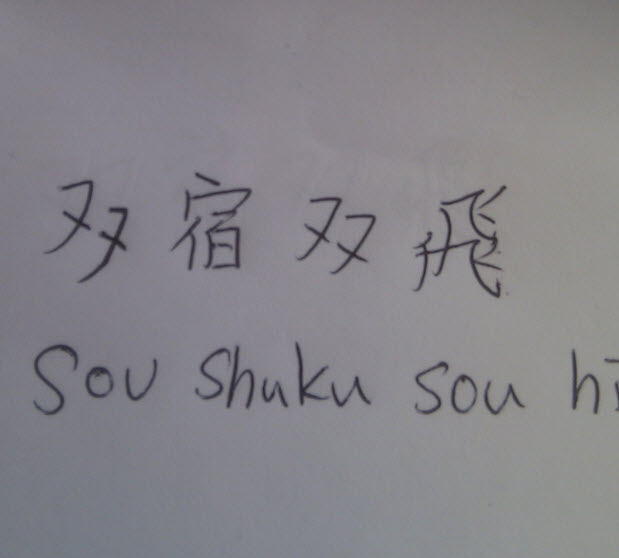 双宿双飛
Sou shuku sou hi